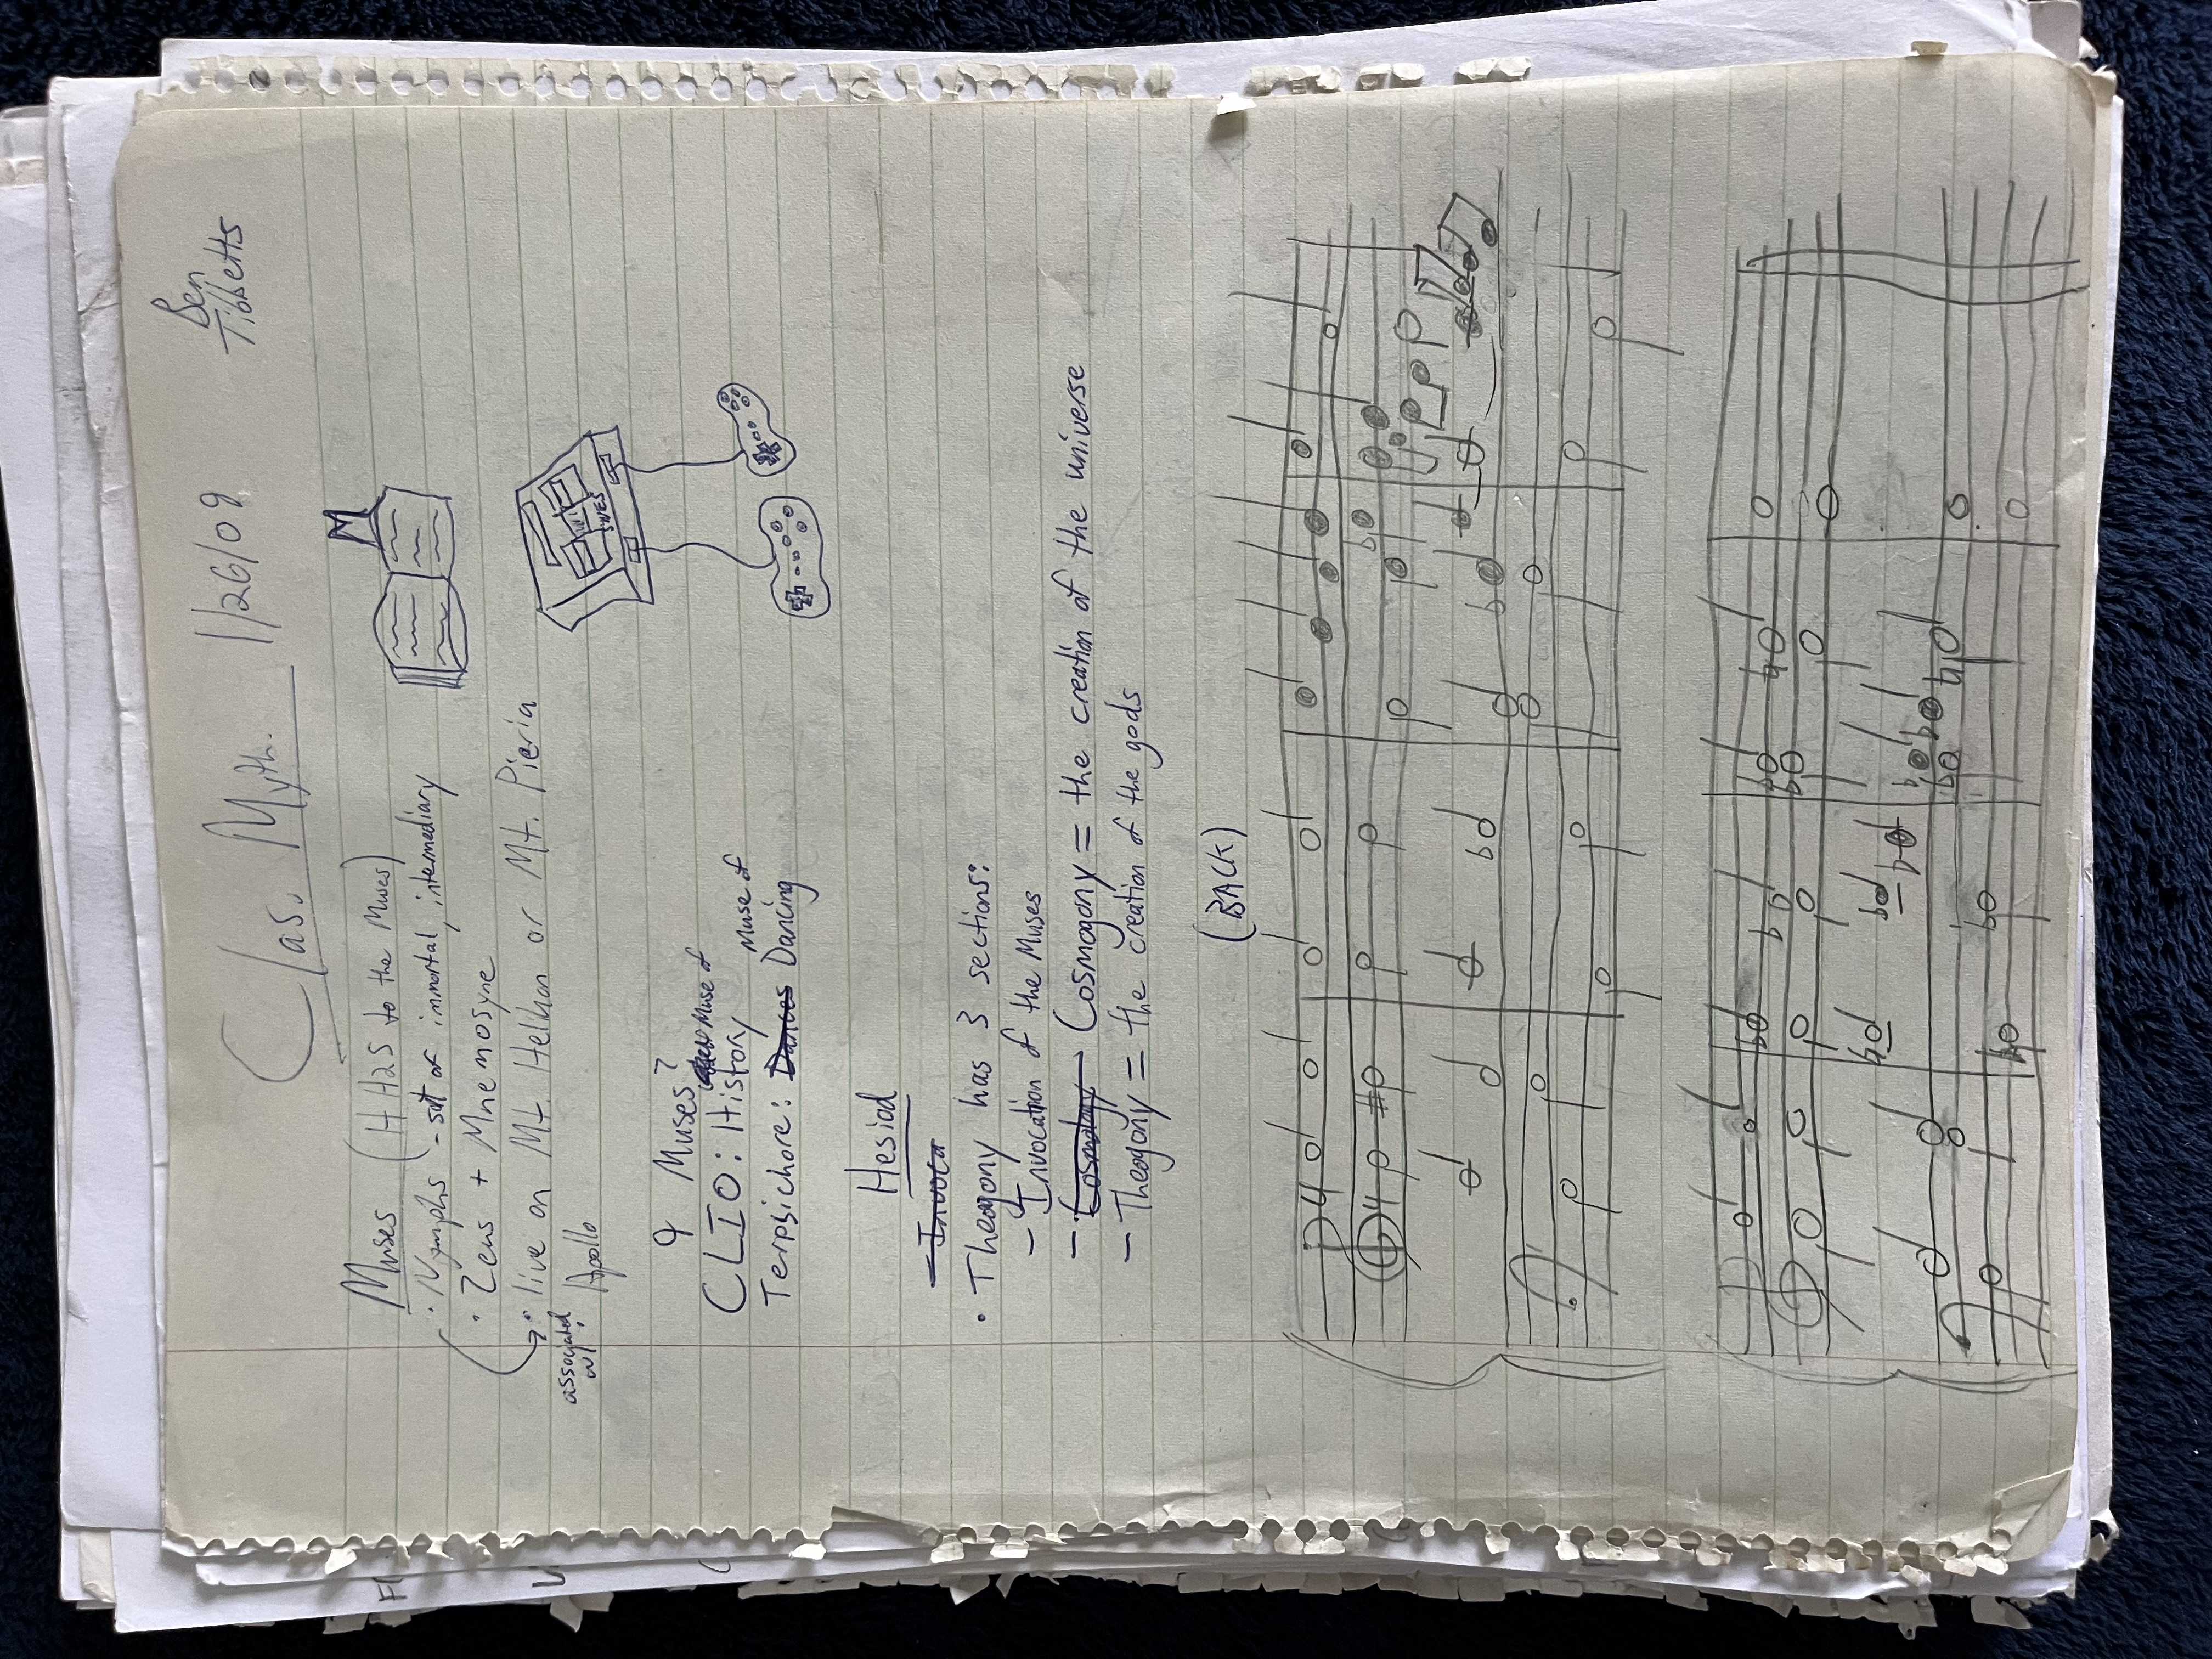 Clas. Myth. 1/26/09 Ben Tibbetts
Muses (HH25 to the Muses)
• Nymphs - sort of immortal, intermediary
• Zeus + Mnemosyne
• live on Mt. Helkon or Mt. Pieria
associated w/ Apollo
9 Muses?
CLIO: History Muse of
Terpsichore: Dances Dancing Muse of
SNES
Hesiod
- Invoca
• Theogony has 3 sections:
- Invocation of the Muses
- Cosmology Cosmogony = the creation of the universe
- Theogony = the creation of the gods
(BACK)
4
4